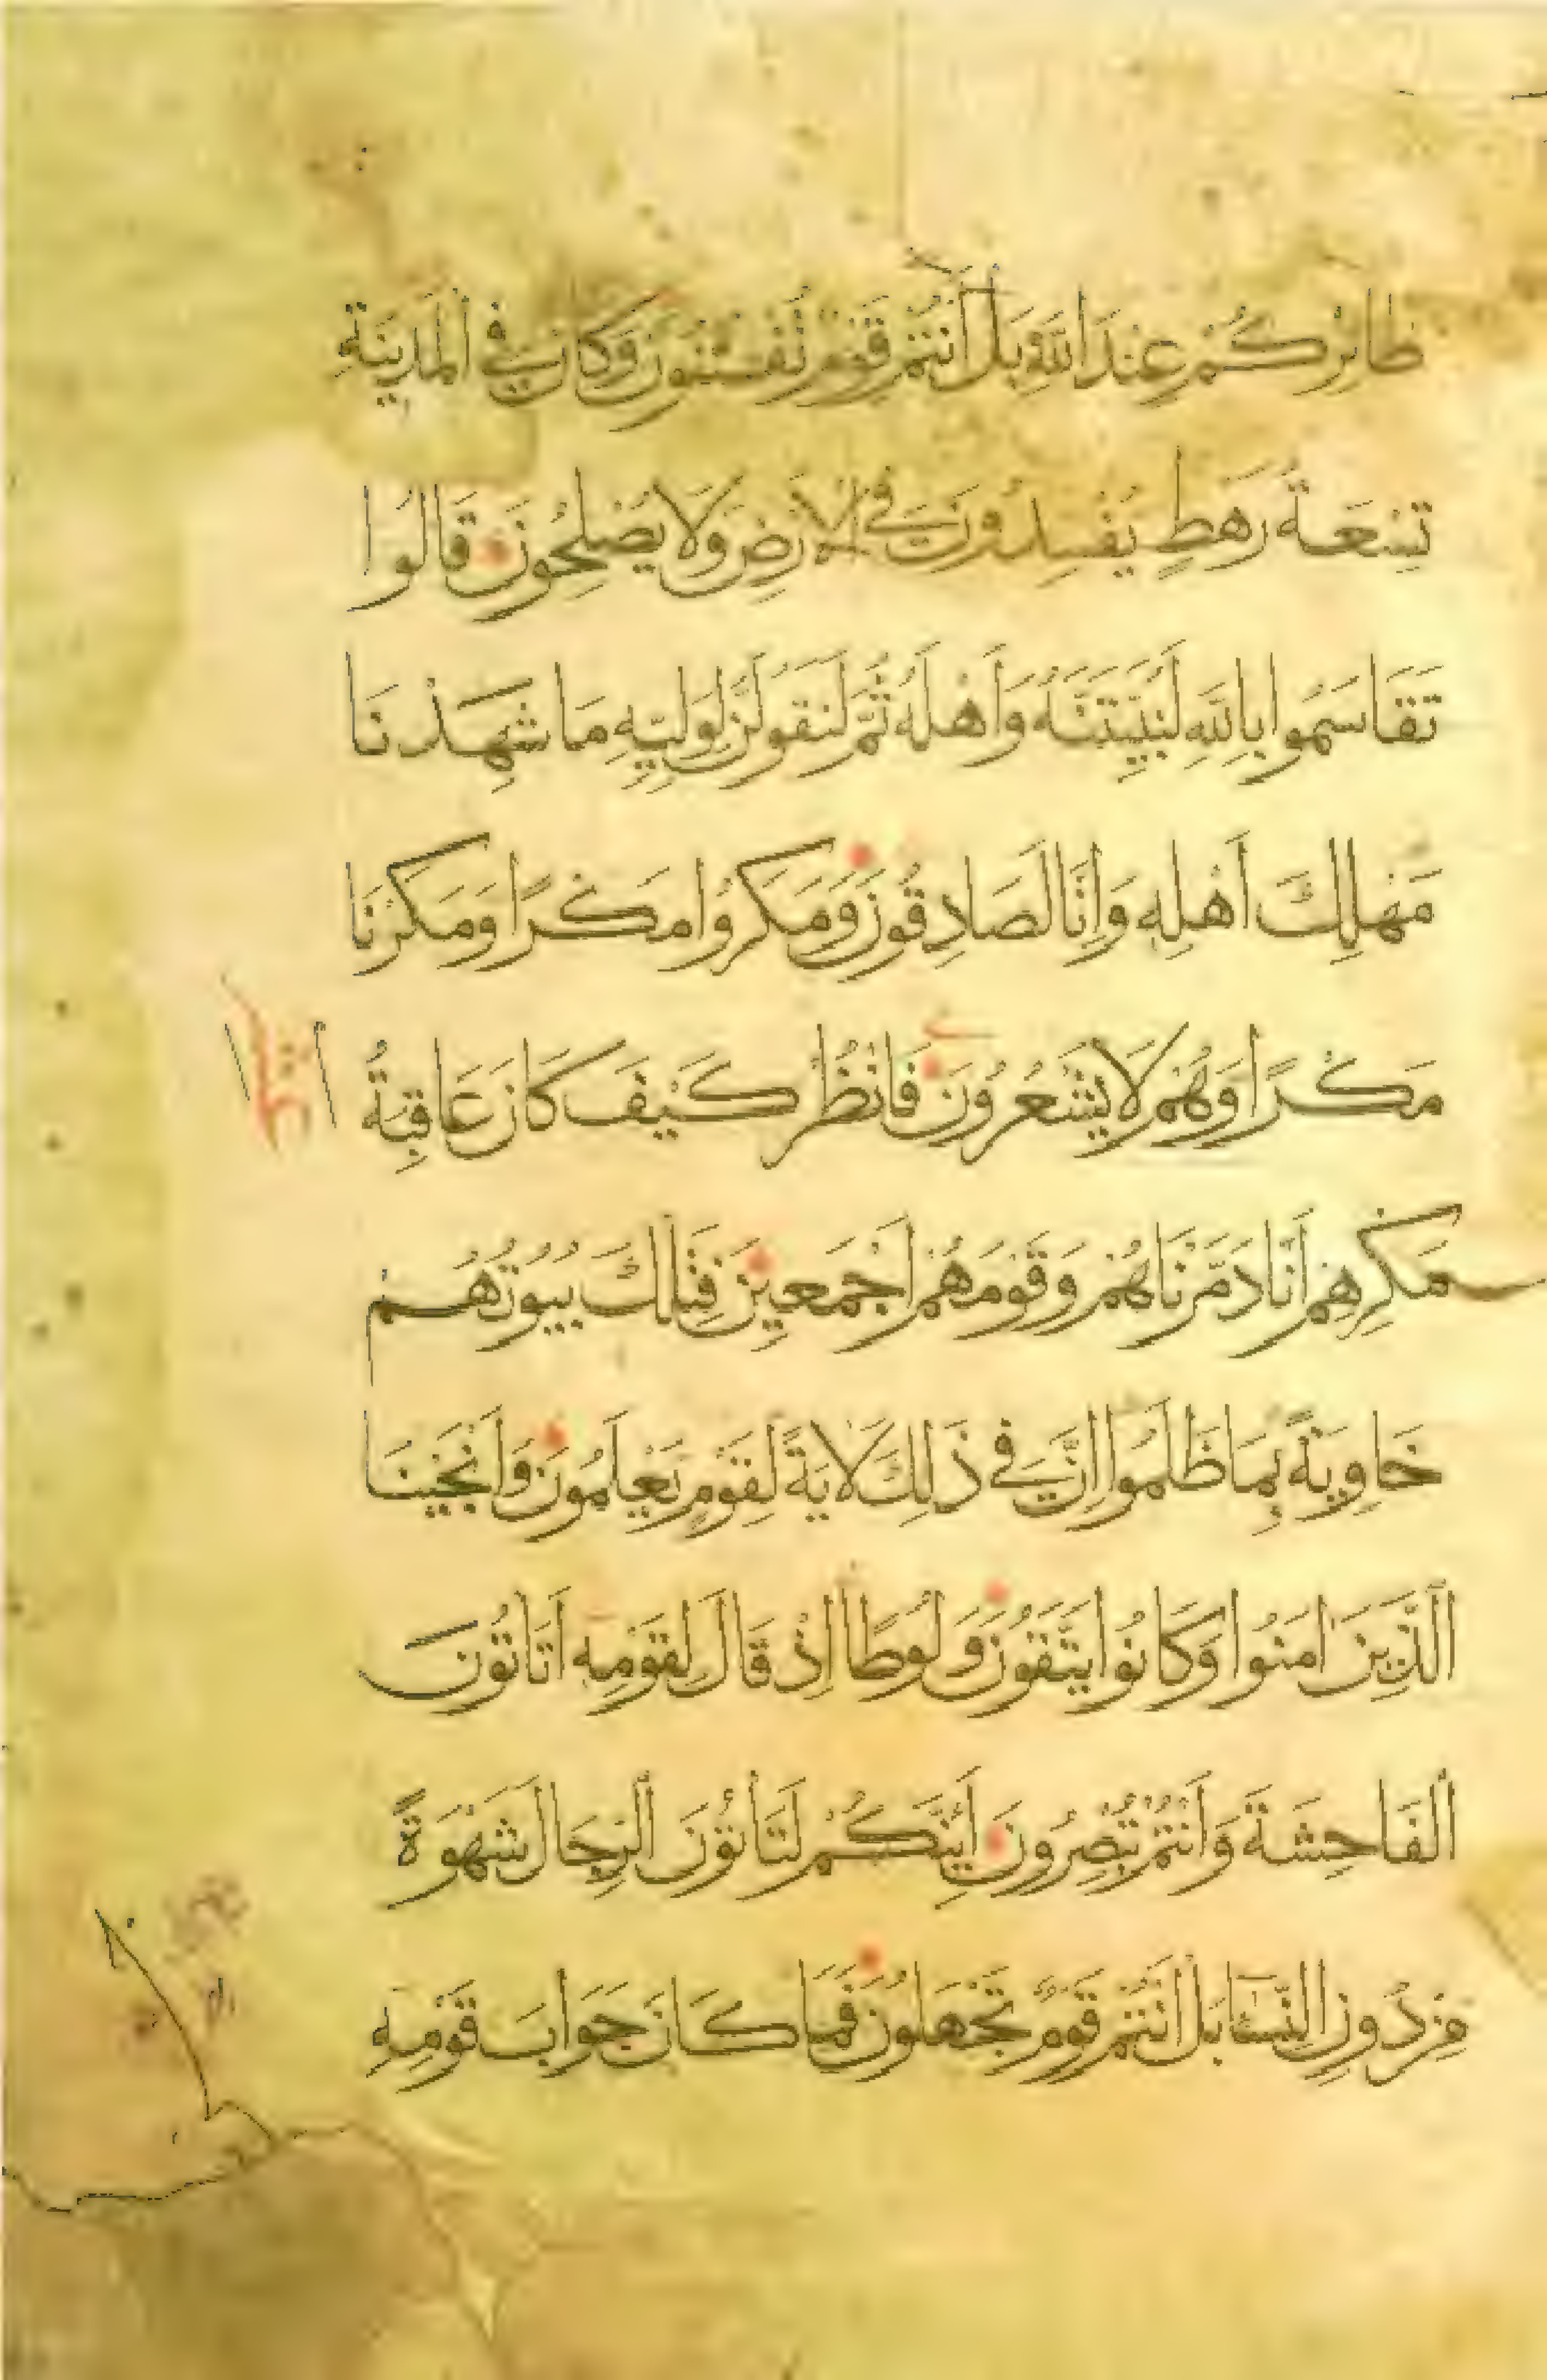 طَائِرُكُمْ عِنْدَ اللَّهِ بَلْ أَنْتُمْ قَوْمٌ تُفْتَنُونَ وَكَانَ فِي الْمَدِينَةِ
تِسْعَةُ رَهْطٍ يُفْسِدُونَ فِي الْأَرْضِ وَلَا يُصْلِحُونَ قَالُوا
تَقَاسَمُوا بِاللَّهِ لَنُبَيِّتَنَّهُ وَأَهْلَهُ ثُمَّ لَنَقُولَنَّ لِوَلِيِّهِ مَا شَهِدْنَا
مَهْلِكَ أَهْلِهِ وَإِنَّا لَصَادِقُونَ وَمَكَرُوا مَكْرًا وَمَكَرْنَا
مَكْرًا وَهُمْ لَا يَشْعُرُونَ فَانْظُرْ كَيْفَ كَانَ عَاقِبَةُ
مَكْرِهِمْ أَنَّا دَمَّرْنَاهُمْ وَقَوْمَهُمْ أَجْمَعِينَ فَتِلْكَ بُيُوتُهُمْ
خَاوِيَةً بِمَا ظَلَمُوا إِنَّ فِي ذَلِكَ لَآيَةً لِقَوْمٍ يَعْلَمُونَ وَأَنْجَيْنَا
الَّذِينَ امَنُوا وَكَانُوا يَتَّقُونَ وَلُوطًا إِذْ قَالَ لِقَوْمِهِ أَتَأْتُونَ
الْفَاحِشَةَ وَأَنْتُمْ تُبْصِرُونَ أَئِنَّكُمْ لَتَأْتُونَ الرِّجَالَ شَهْوَةً
مِنْ دُونِ النِّسَاءِ بَلْ أَنْتُمْ قَوْمٌ تَجْهَلُونَ فَمَا كَانَ جَوَابَ قَوْمِهِ